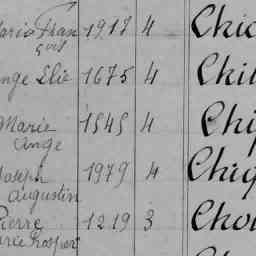 Marie Fran 1917 4 Chic
çois
Ange Elie 1675 4 Chil
Marie 1545 4 Chi
Ange
Joseph 1979 4 Chiq
Augustin
Pierre 1219 3 Cho
Marie Prosper